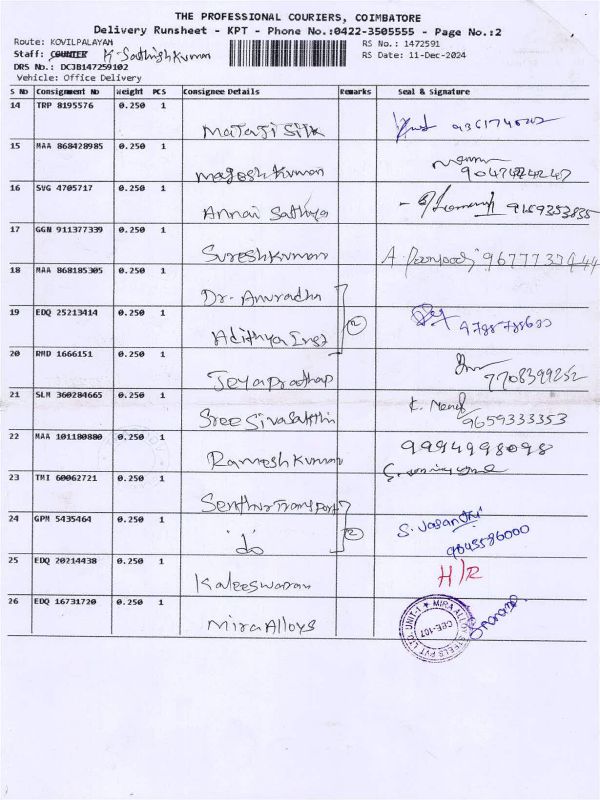 THE PROFESSIONAL COURIERS, COIMBATORE
Delivery Runsheet - KPT - Phone No.:0422-3505555 - Page No.:2
Route: KOVILPALAYAM
RS No.: 1472591
Staff: COUNTER K-Sathish Kumar
RS Date: 11-Dec-2024
DRS No.: DCJB147259102
Vehicle: Office Delivery
S No Consignment No Weight PCS Consignee Details Remarks Seal & Signature
14 TRP 8195576 0.250 1
Mataji Silk
15 MAA 868428985 0.250 1
Magesh Kumar
16 SVG 4705717 0.250 1
Annai Sathya 9159353835
17 GGN 911377339 0.250 1
Sureshkumar
18 MAA 868185305 0.250 1
Dr. Anuradha
19 EDQ 25213414 0.250 1
Adithya Engg 2
20 RMD 1666151 0.250 1
Jeyaprathap 7708399252
21 SLM 360284665 0.250 1
Sree Sivasakthi 9659333353
22 MAA 101180880 0.250 1
Ramesh Kumar 9994998098
23 TMI 60062721 0.250 1
Senthur Transport
24 GPM 5435464 0.250 1
do 2 S. Vasanthi
9843586000
25 EDQ 20214438 0.250 1
Kaleeswaran H/R
26 EDQ 16731720 0.250 1
Mira Alloys
MIRA ALLOY STEELS PVT LTD. UNIT-1
CEE-107